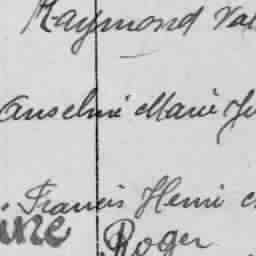 Raymond
Anselme Marie
Francis Henri
Roger